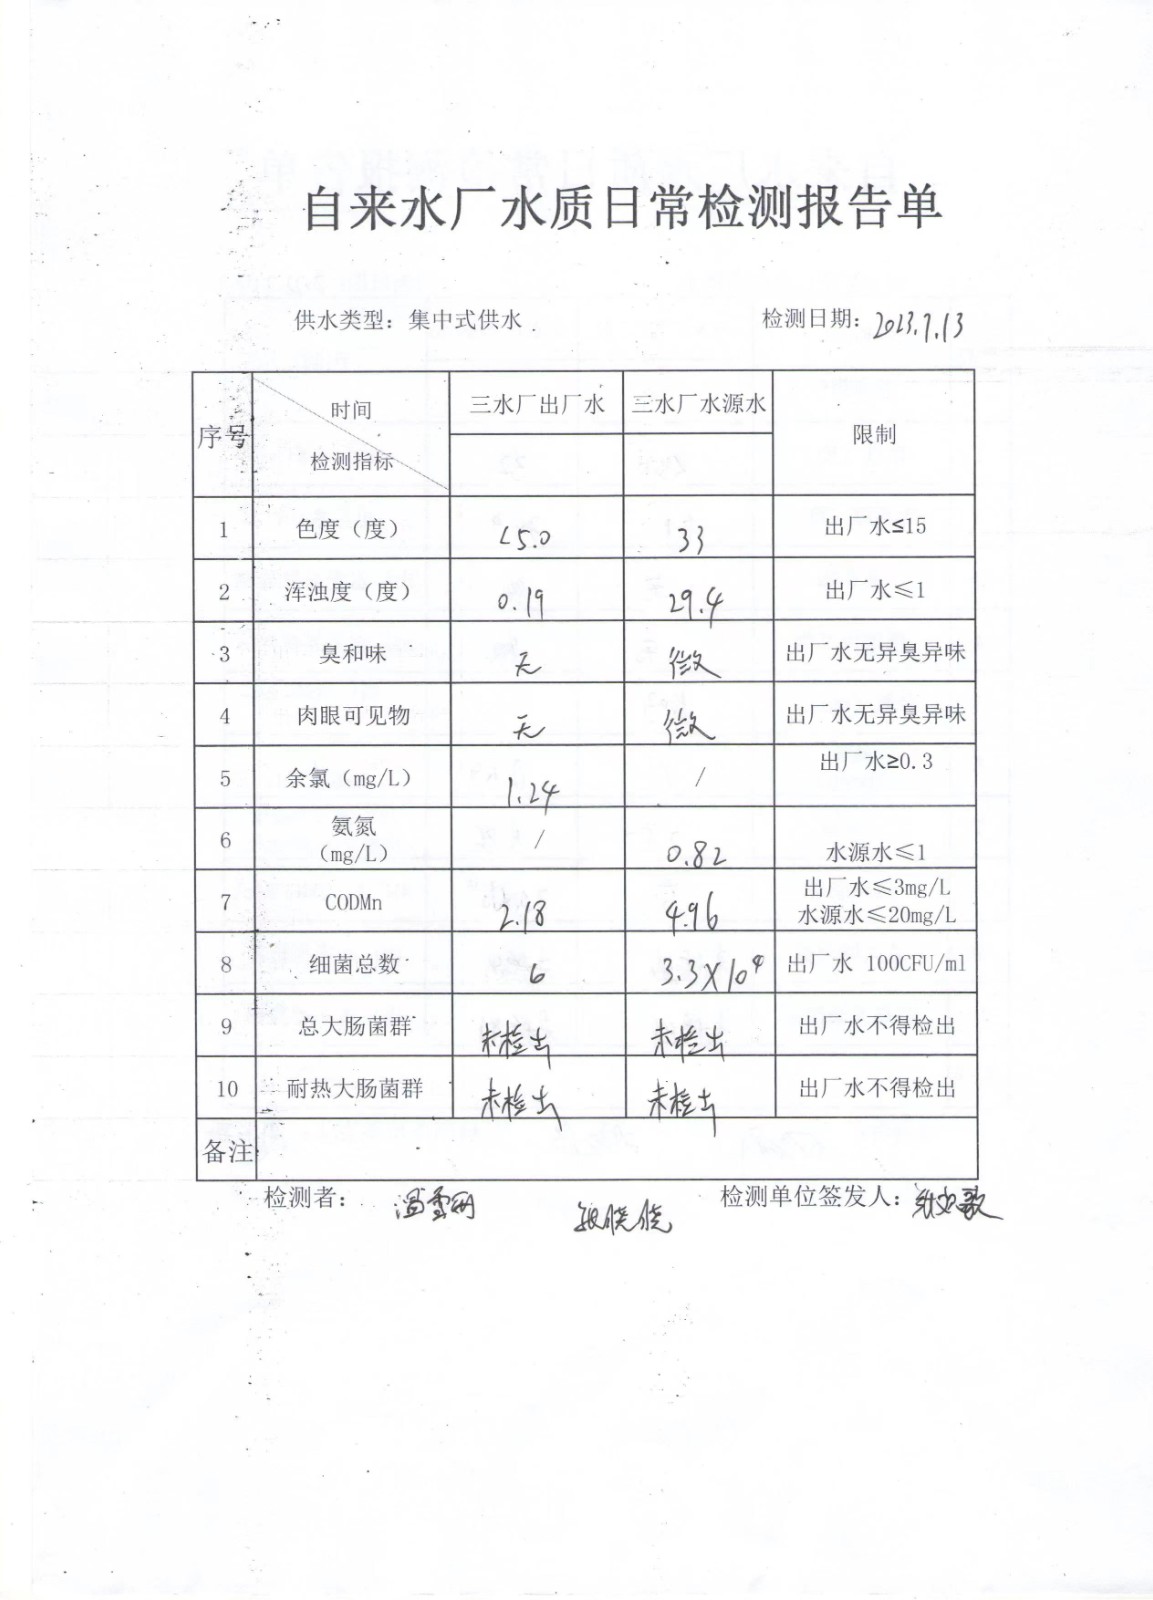 自来水厂水质日常检测报告单
供水类型：集中式供水 检测日期：2023.7.13
序号 时间 检测指标 三水厂出厂水 三水厂水源水 限制
1 色度（度） <5.0 33 出厂水≤15
2 浑浊度（度） 0.19 29.4 出厂水≤1
3 臭和味 无 微 出厂水无异臭异味
4 肉眼可见物 无 微 出厂水无异臭异味
5 余氯（mg/L） 1.24 / 出厂水≥0.3
6 氨氮（mg/L） / 0.82 水源水≤1
7 CODMn 2.18 4.96 出厂水≤3mg/L 水源水≤20mg/L
8 细菌总数 6 3.3X10⁴ 出厂水 100CFU/ml
9 总大肠菌群 未检出 未检出 出厂水不得检出
10 耐热大肠菌群 未检出 未检出 出厂水不得检出
备注
检测者： 检测单位签发人：